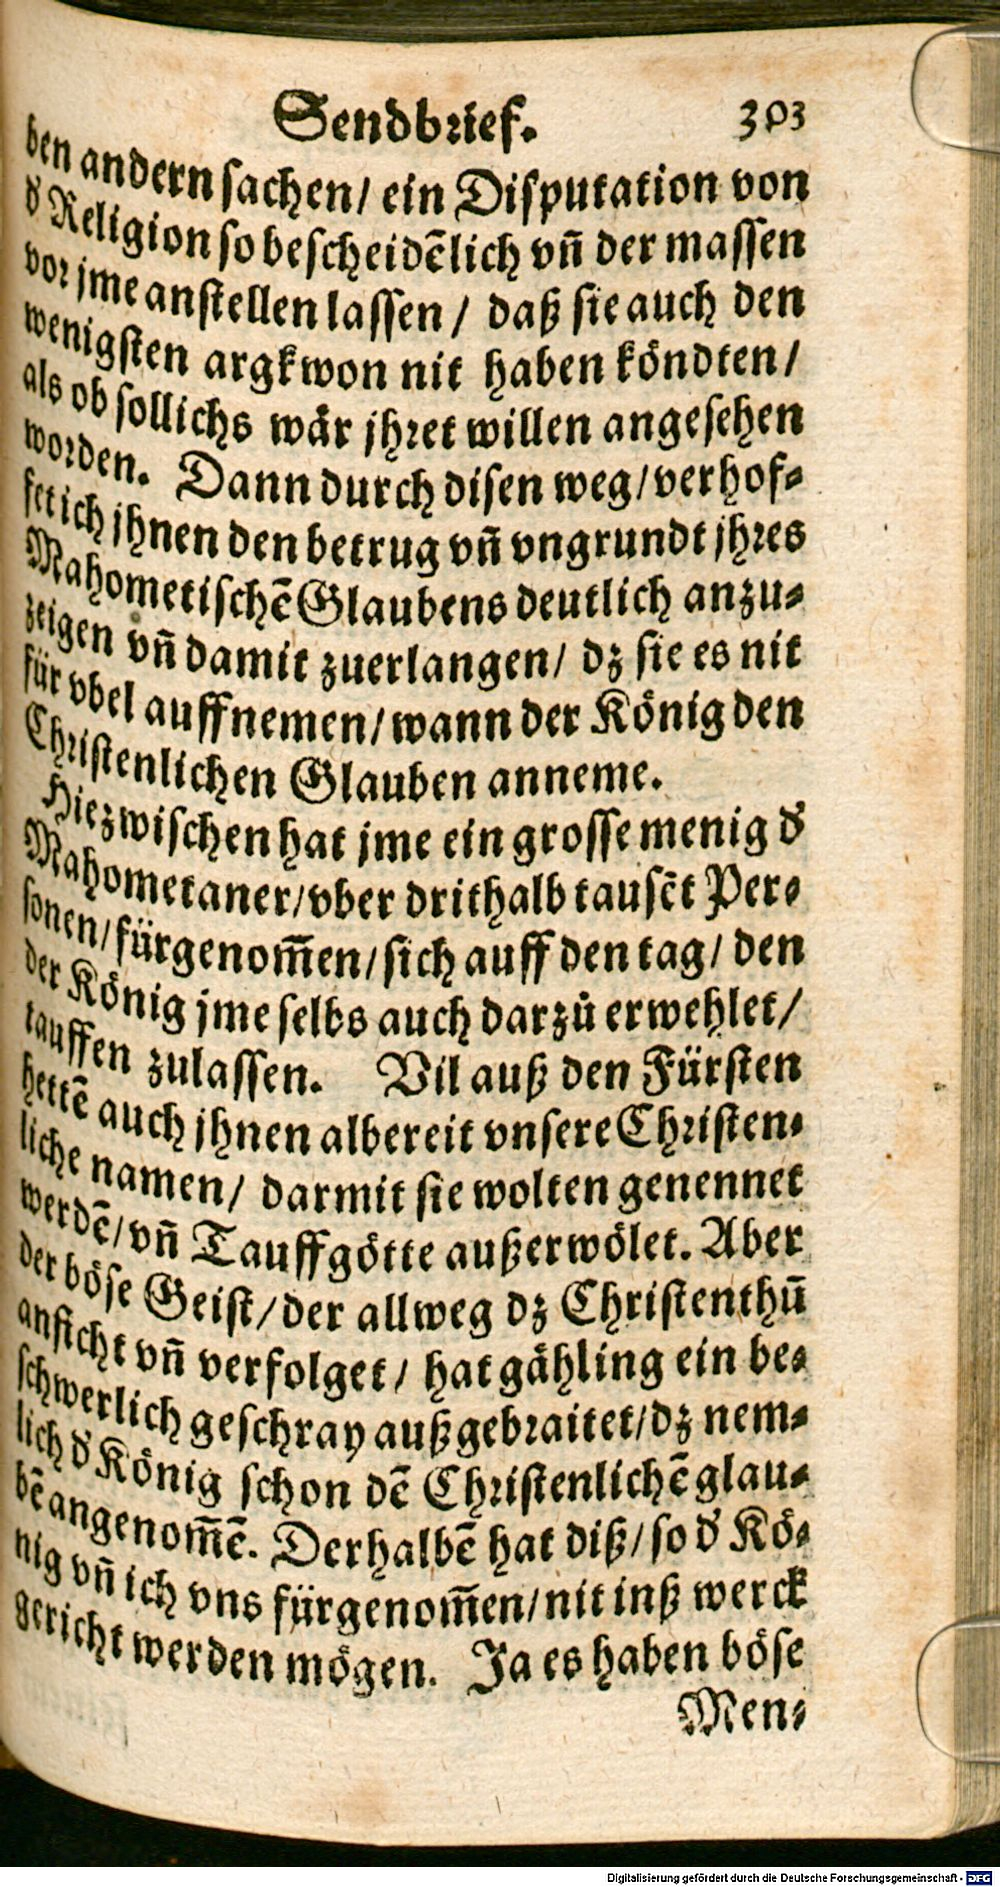 Sendbrief. 303
ben andern sachen/ ein Disputation von
d' Religion so bescheidẽlich vñ der massen
vor jme anstellen lassen / daß sie auch den
wenigsten argkwon nit haben köndten/
als ob sollichs wär jhret willen angesehen
worden. Dann durch disen weg/verhof⸗
fet ich jhnen den betrug vñ vngrundt jhres
Mahometischẽ Glaubens deutlich anzu⸗
zeigen vñ damit zuerlangen/ dz sie es nit
für vbel auffnemen/wann der König den
Christenlichen Glauben anneme.
Hiezwischen hat jme ein grosse menig d'
Mahometaner/vber drithalb tausẽt Per⸗
sonen/fürgenom̃en/sich auff den tag/ den
der König jme selbs auch darzů erwehlet/
tauffen zulassen. Vil auß den Fürsten
hettẽ auch jhnen albereit vnsere Christen⸗
liche namen/ darmit sie wolten genennet
werdẽ/vñ Tauffgötte außerwölet. Aber
der böse Geist/der allweg dz Christenthũ
anficht vñ verfolget/ hat gähling ein be⸗
schwerlich geschray außgebraitet/dz nem⸗
lich d' König schon dẽ Christenlichẽ glau⸗
bẽ angenom̃ẽ. Derhalbẽ hat diß/so d' Kö⸗
nig vñ ich vns fürgenom̃en/nit inß werck
gericht werden mögen. Ja es haben böse
Men⸗
Digitalisierung gefördert durch die Deutsche Forschungsgemeinschaft - DFG